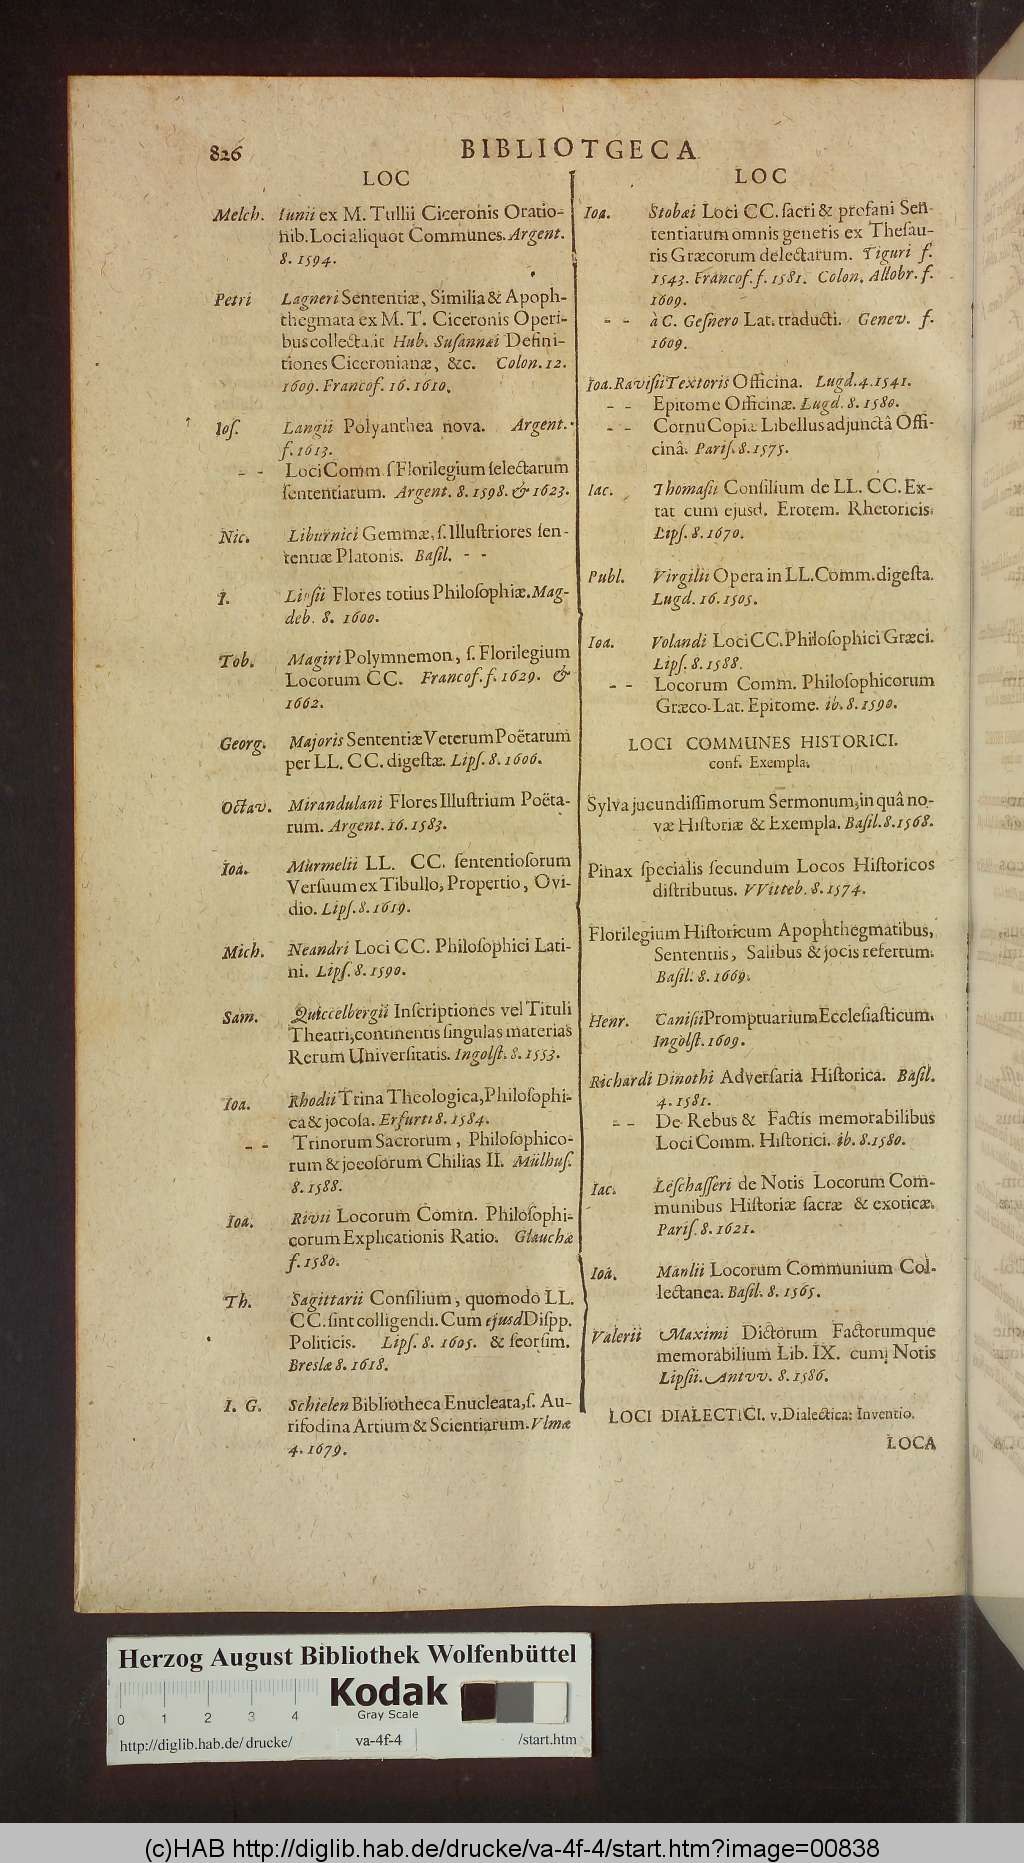 826
BIBLIOTGECA
LOC
Melch. Iunii ex M. Tullii Ciceronis Oratio-
nib. Loci aliquot Communes. Argent.
8. 1594.
Petri Lagneri Sententiæ, Similia & Apoph-
thegmata ex M. T. Ciceronis Operi-
bus collecta. it Hub. Susannæi Defini-
tiones Ciceronianæ, &c. Colon. 12.
1609. Francof. 16. 1610.
Ios. Langii Polyanthea nova. Argent.
f. 1613.
- - Loci Comm. ſ Florilegium ſelectarum
ſententiarum. Argent. 8. 1598. & 1623.
Nic. Liburnici Gemmæ, ſ. Illuſtriores ſen-
tentiæ Platonis. Baſil. - -
I. Lipſii Flores totius Philoſophiæ. Mag-
deb. 8. 1600.
Tob. Magiri Polymnemon, ſ. Florilegium
Locorum CC. Francof. f. 1629. &
1662.
Georg. Majoris Sententiæ Veterum Poëtarum
per LL. CC. digeſtæ. Lipſ. 8. 1606.
Octav. Mirandulani Flores Illuſtrium Poëta-
rum. Argent. 16. 1583.
Ioa. Murmelii LL. CC. ſententioſorum
Verſuum ex Tibullo, Propertio, Ovi-
dio. Lipſ. 8. 1619.
Mich. Neandri Loci CC. Philoſophici Lati-
ni. Lipſ. 8. 1590.
Sam. Quiccelbergii Inſcriptiones vel Tituli
Theatri, continentis ſingulas materias
Rerum Univerſitatis. Ingolſt. 8. 1553.
Ioa. Rhodii Trina Theologica, Philoſophi-
ca & jocoſa. Erfurti 8. 1584.
- - Trinorum Sacrorum, Philoſophico-
rum & jocoſorum Chilias II. Mülhuſ.
8. 1588.
Ioa. Rivii Locorum Comm. Philoſophi-
corum Explicationis Ratio. Glauchæ
f. 1580.
Th. Sagittarii Conſilium, quomodo LL.
CC. ſint colligendi. Cum ejusd Diſpp.
Politicis. Lipſ. 8. 1605. & ſeorſim.
Breslæ 8. 1618.
I. G. Schielen Bibliotheca Enucleata, ſ. Au-
rifodina Artium & Scientiarum. Vlmæ
4. 1679.
LOC
Ioa. Stobæi Loci CC. ſacri & profani Sen-
tentiarum omnis generis ex Theſau-
ris Græcorum delectarum. Tiguri f.
1543. Francof. f. 1581. Colon. Allobr. f.
1609.
- - à C. Geſnero Lat. traducti. Genev. f.
1609.
Ioa. Raviſii Textoris Officina. Lugd. 4. 1541.
- - Epitome Officinæ. Lugd. 8. 1580.
- - Cornu Copiæ Libellus adjunctâ Offi-
cinâ. Pariſ. 8. 1575.
Iac. Thomaſii Conſilium de LL. CC. Ex-
tat cum ejusd. Erotem. Rhetoricis.
Lipſ. 8. 1670.
Publ. Virgilii Opera in LL. Comm. digeſta.
Lugd. 16. 1505.
Ioa. Volandi Loci CC. Philoſophici Græci.
Lipſ. 8. 1588.
- - Locorum Comm. Philoſophicorum
Græco-Lat. Epitome. ib. 8. 1590.
LOCI COMMUNES HISTORICI.
conf. Exempla.
Sylva jucundiſſimorum Sermonum, in quâ no-
væ Hiſtoriæ & Exempla. Baſil. 8. 1568.
Pinax ſpecialis ſecundum Locos Hiſtoricos
diſtributus. VVitteb. 8. 1574.
Florilegium Hiſtoricum Apophthegmatibus,
Sententiis, Salibus & jocis refertum.
Baſil. 8. 1669.
Henr. Caniſii Promptuarium Eccleſiaſticum.
Ingolſt. 1609.
Richardi Dinothi Adverſaria Hiſtorica. Baſil.
4. 1581.
- - De Rebus & Factis memorabilibus
Loci Comm. Hiſtorici. ib. 8. 1580.
Iac. Leſchaſſeri de Notis Locorum Com-
munibus Hiſtoriæ ſacræ & exoticæ.
Pariſ. 8. 1621.
Ioa. Manlii Locorum Communium Col-
lectanea. Baſil. 8. 1565.
Valerii Maximi Dictorum Factorumque
memorabilium Lib. IX. cum Notis
Lipſii. Antvv. 8. 1586.
LOCI DIALECTICI. v. Dialectica: Inventio.
LOCA
Herzog August Bibliothek Wolfenbüttel
Kodak
Gray Scale
0 1 2 3 4
http://diglib.hab.de/drucke/ va-4f-4 /start.htm
(c)HAB http://diglib.hab.de/drucke/va-4f-4/start.htm?image=00838